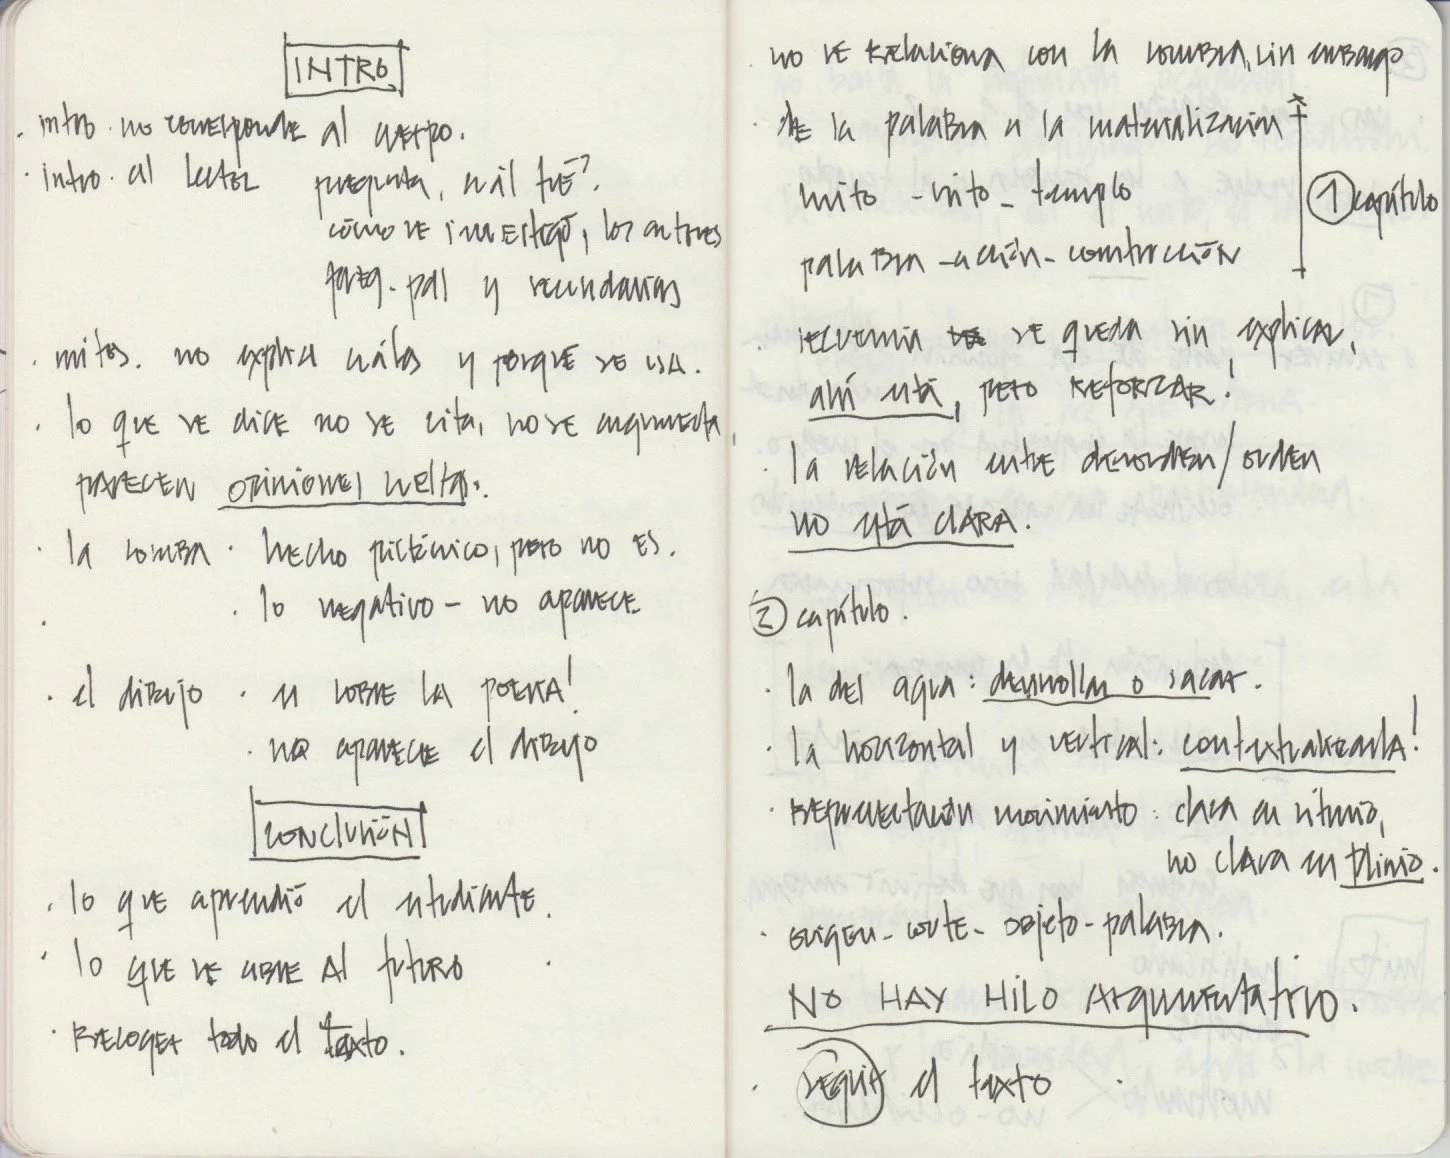 INTRO
. intro. no corresponde al cuerpo.
. intro. al lector pregunta, cuál fue?
cómo se investigó, los autores
preg. pal y secundarias
. mitos. no explica cuáles y porqué se usa.
. lo que se dice no se cita, no se argumenta,
parecen opiniones sueltas.
. la sombra . hecho pictórico, pero no es.
. lo negativo - no aparece
. el dibujo . es sobre la poesía!
. no aparece el dibujo
CONCLUSIÓN
. lo que aprendió el estudiante.
. lo que se abre al futuro
. recoger todo el texto.
. no se relaciona con la sombra, sin embargo
. de la palabra a la materialización
mito - rito - templo
1 capítulo
palabra - acción - construcción
. secuencia se queda sin explicar,
ahí está, pero reforzar!
. la relación entre desorden/orden
no está clara.
2 capítulo.
. la del agua: desarrollar o sacar.
. la horizontal y vertical: contextualizarla!
. representación movimiento: clara en
no clara en Plinio.
. origen - corte - objeto - palabra.
NO HAY HILO Argumentativo.
. seguir el texto